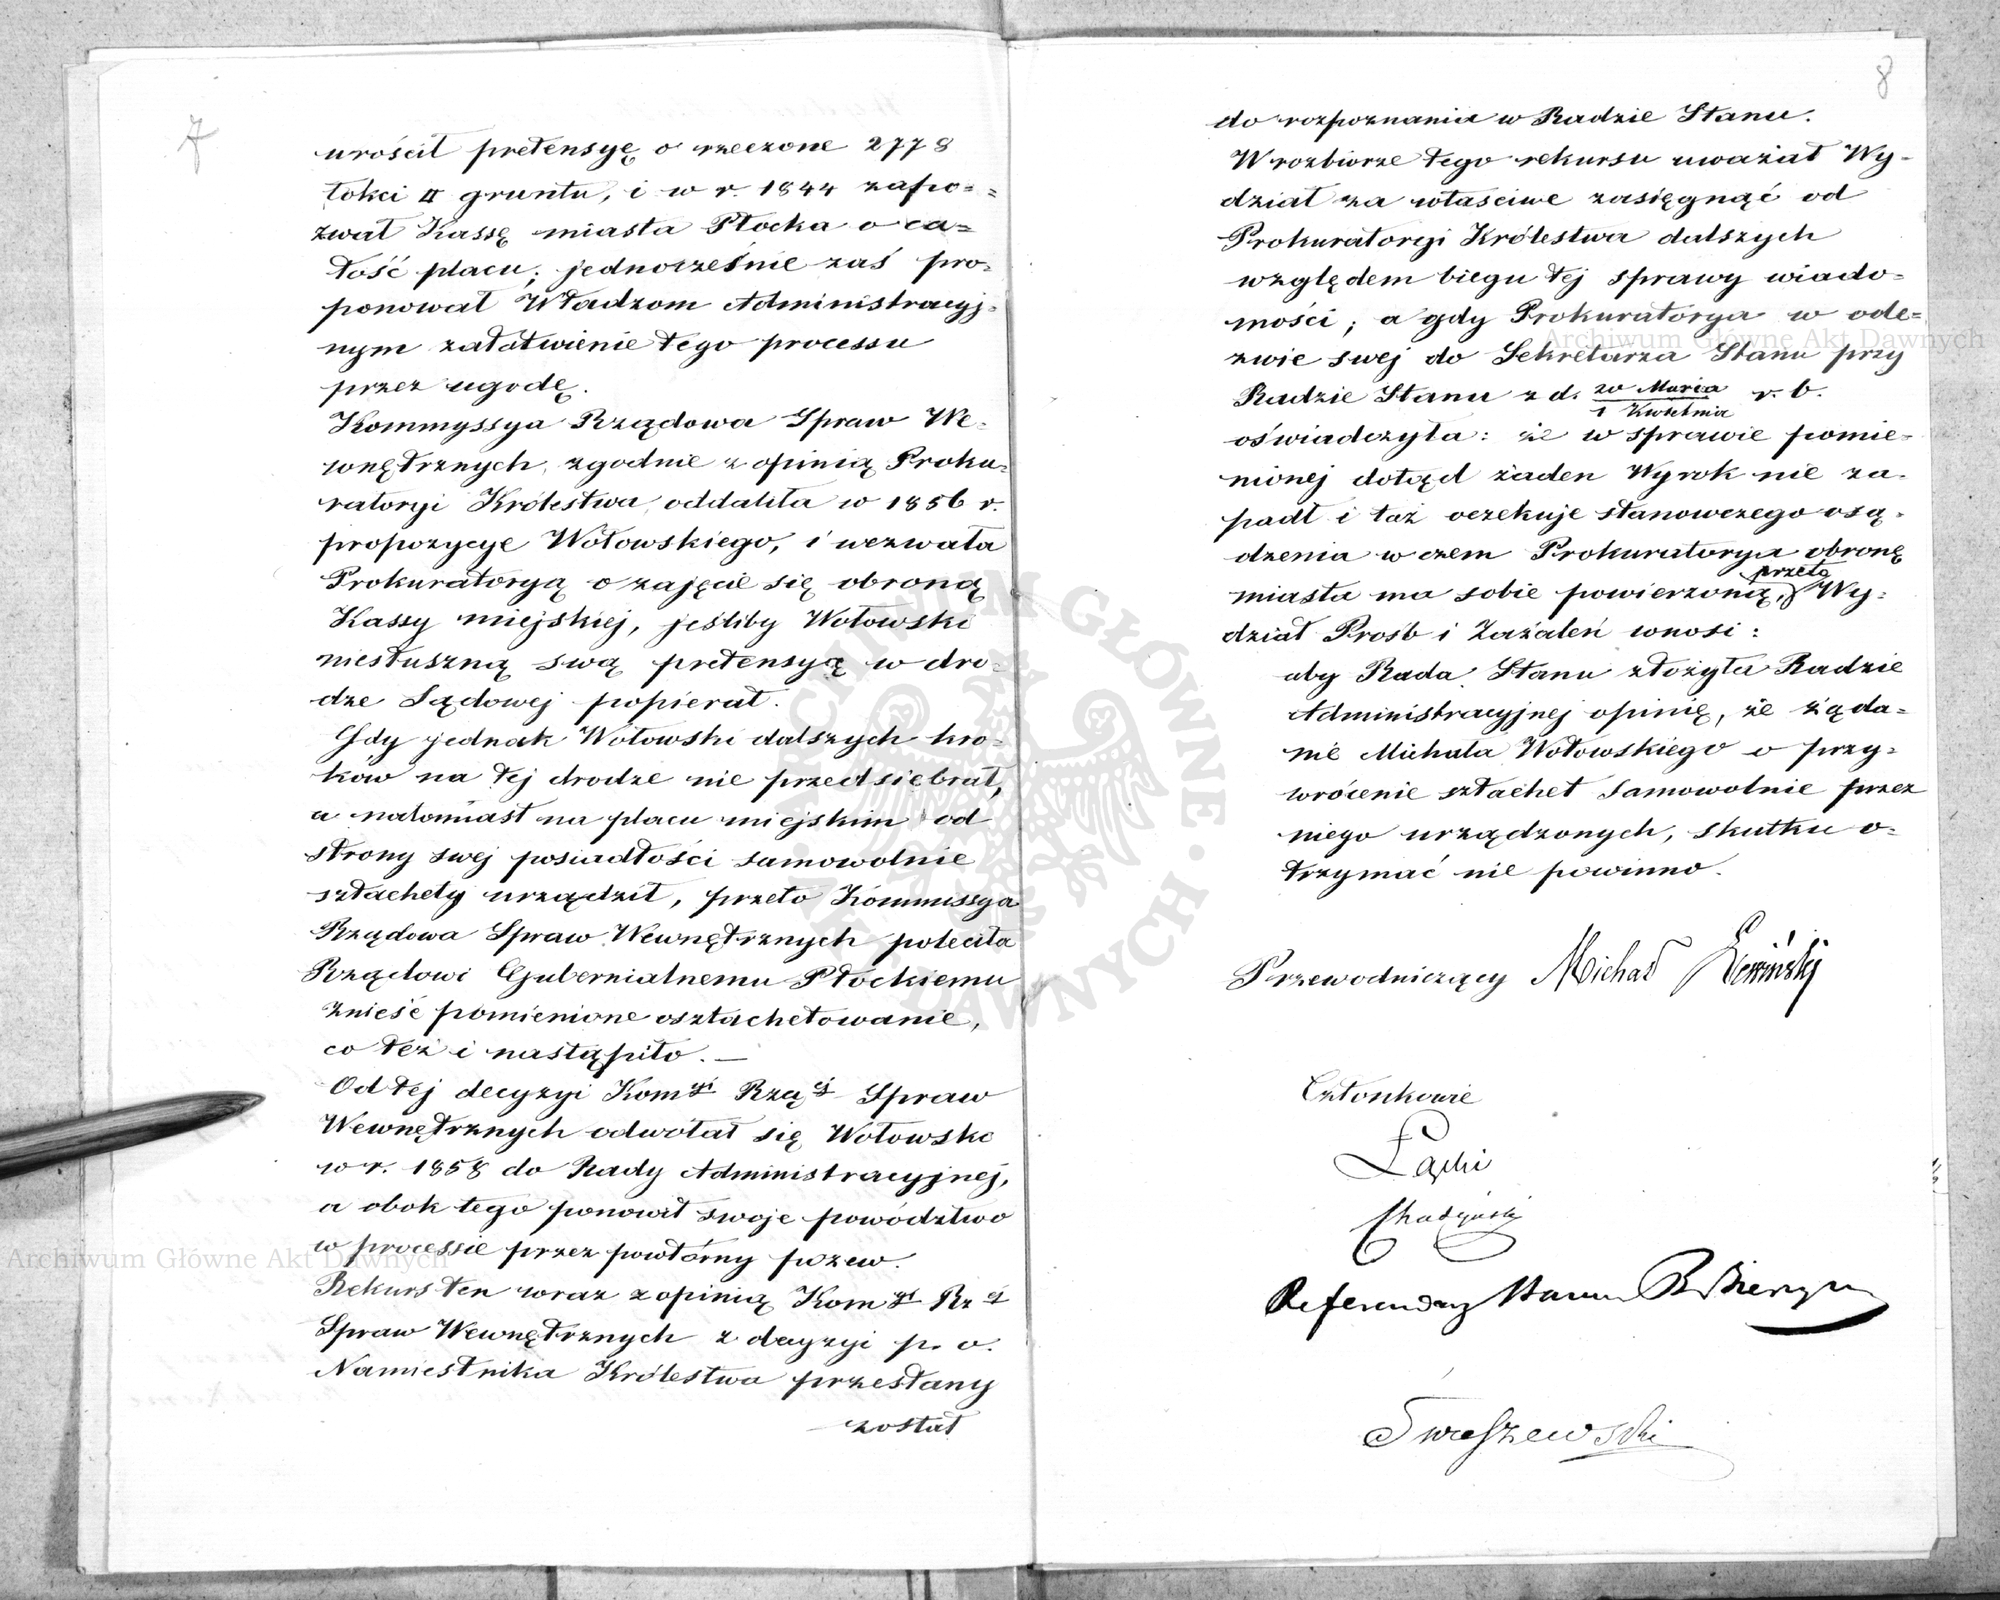 7
urościł pretensyę o rzeczone 2778
łokci □ gruntu, i w r. 1844 zapo=
zwał Kassę miasta Płocka o ca=
łość placu; jednocześnie zaś pro-
ponował Władzom Administracyj-
nym załatwienie tego processu
przez ugodę.
Kommyssya Rządowa Spraw We-
wnętrznych, zgodnie z opinią Proku-
ratoryi Królestwa, oddaliła w 1856 r.
propozycye Wołowskiego, i wezwała
Prokuratoryą o zajęcie się obroną
Kassy miejskiej, jeśliby Wołowski
niesłuszną swą pretensyą w dro-
dze Sądowej popierał.
Gdy jednak Wołowski dalszych kro-
ków na tej drodze nie przedsiębrał,
a natomiast na placu miejskim od
strony swej posiadłości samowolnie
sztachety urządził, przeto Kommissya
Rządowa Spraw Wewnętrznych poleciła
Rządowi Gubernialnemu Płockiemu
znieść pomienione osztachetowanie,
co też i nastąpiło. —
Od tej decyzyi Kom^yi Rzą^ej Spraw
Wewnętrznych odwołał się Wołowski
w r. 1858 do Rady Administracyjnej,
a obok tego ponowił swoje powództwo
w processie przez powtórny pozew.
Rekurs ten wraz z opinią Kom^yi Rz^ej
Spraw Wewnętrznych z decyzyi p. o.
Namiestnika Królestwa przesłany
został
8
do rozpoznania w Radzie Stanu.
W rozbiorze tego rekursu uważał Wy-
dział za właściwe zasięgnąć od
Prokuratoryi Królestwa dalszych
względem biegu tej sprawy wiado-
mości; a gdy Prokuratorya w ode=
zwie swej do Sekretarza Stanu przy
Radzie Stanu z d. 20 Marca / 1 Kwietnia r. b.
oświadczyła: że w sprawie pomie-
nionej dotąd żaden Wyrok nie za-
padł i taż oczekuje stanowczego osą-
dzenia w czem Prokuratorya obronę
miasta ma sobie powierzoną, przeto Wy-
dział Prośb i Zażaleń wnosi:
aby Rada Stanu złożyła Radzie
Administracyjnej opinię, że żąda-
nie Michała Wołowskiego o przy-
wrócenie sztachet samowolnie przez
niego urządzonych, skutku o-
trzymać nie powinno.
Przewodniczący Michał
Członkowie
Łącki
Referendarz Stanu
Archiwum Główne Akt Dawnych
Archiwum Główne Akt Dawnych
ARCHIWUM GŁÓWNE AKT DAWNYCH